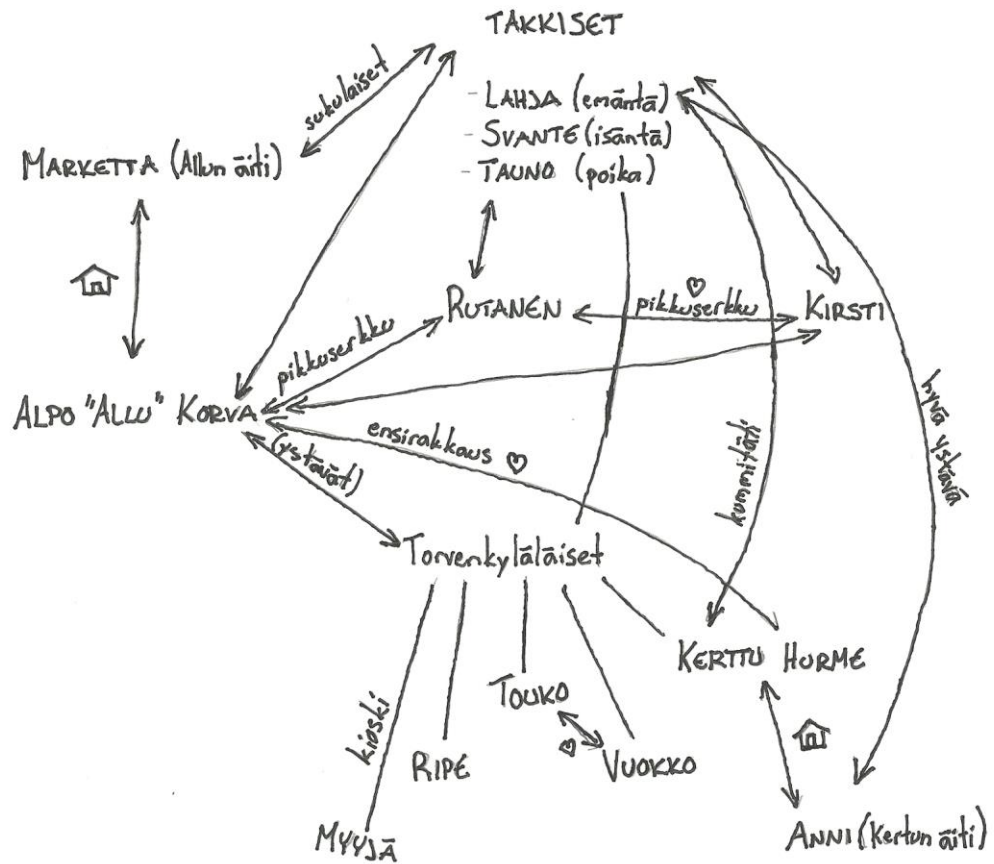 TAKKISET
sukulaiset
- LAHJA (emäntä)
- SVANTE (isäntä)
- TAUNO (poika)
MARKETTA (Allun äiti)
RUTANEN
pikkuserkku
KIRSTI
pikkuserkku
ALPO "ALLU" KORVA
ensirakkaus
(ystävät)
kummitäti
hyvä ystävä
Torvenkyläläiset
KERTTU HURME
TOUKO
kioski
RIPE
VUOKKO
MYYJÄ
ANNI (Kertun äiti)